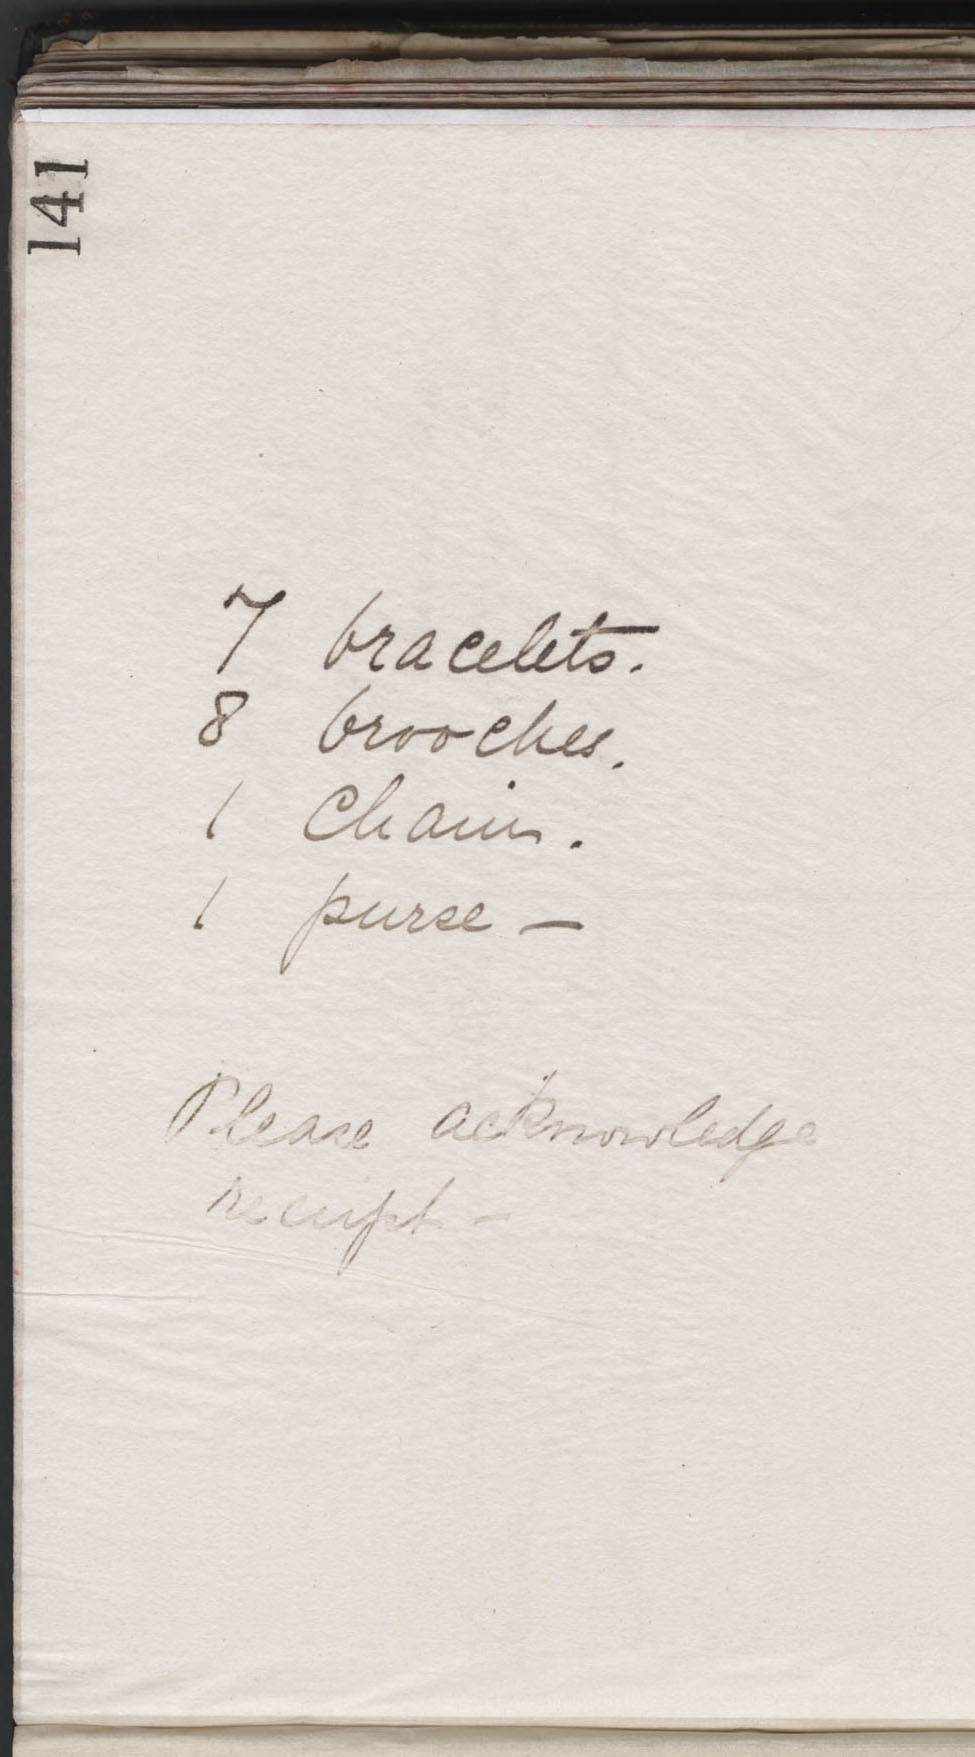 141
7 bracelets.
8 brooches.
1 Chain.
1 purse —
Please acknowledge
receipt —